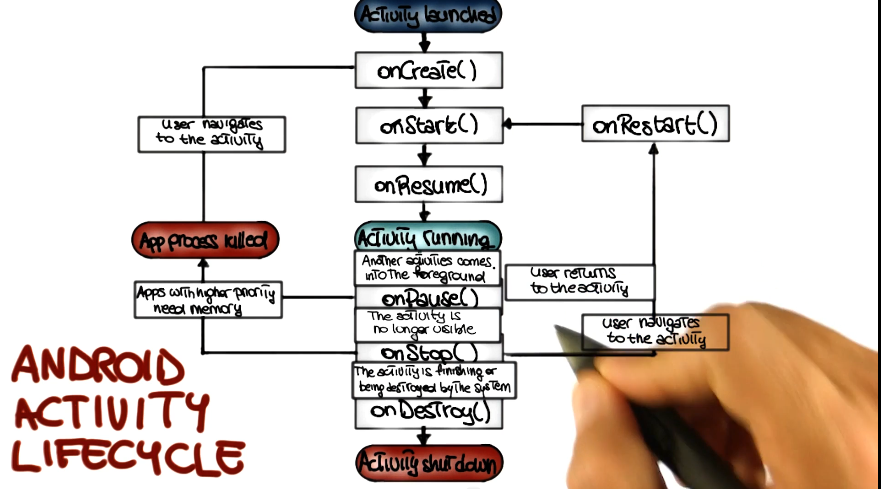 Activity launched
onCreate()
User navigates
to the activity
onStart()
onRestart()
onResume()
App process killed
Activity running
Another activities comes
into the foreground
User returns
to the activity
Apps with higher priority
need memory
onPause()
The activity is
no longer visible
User navigates
to the activity
onStop()
The activity is finishing or
being destroyed by the system
onDestroy()
Activity shut down
ANDROID
ACTIVITY
LIFECYCLE